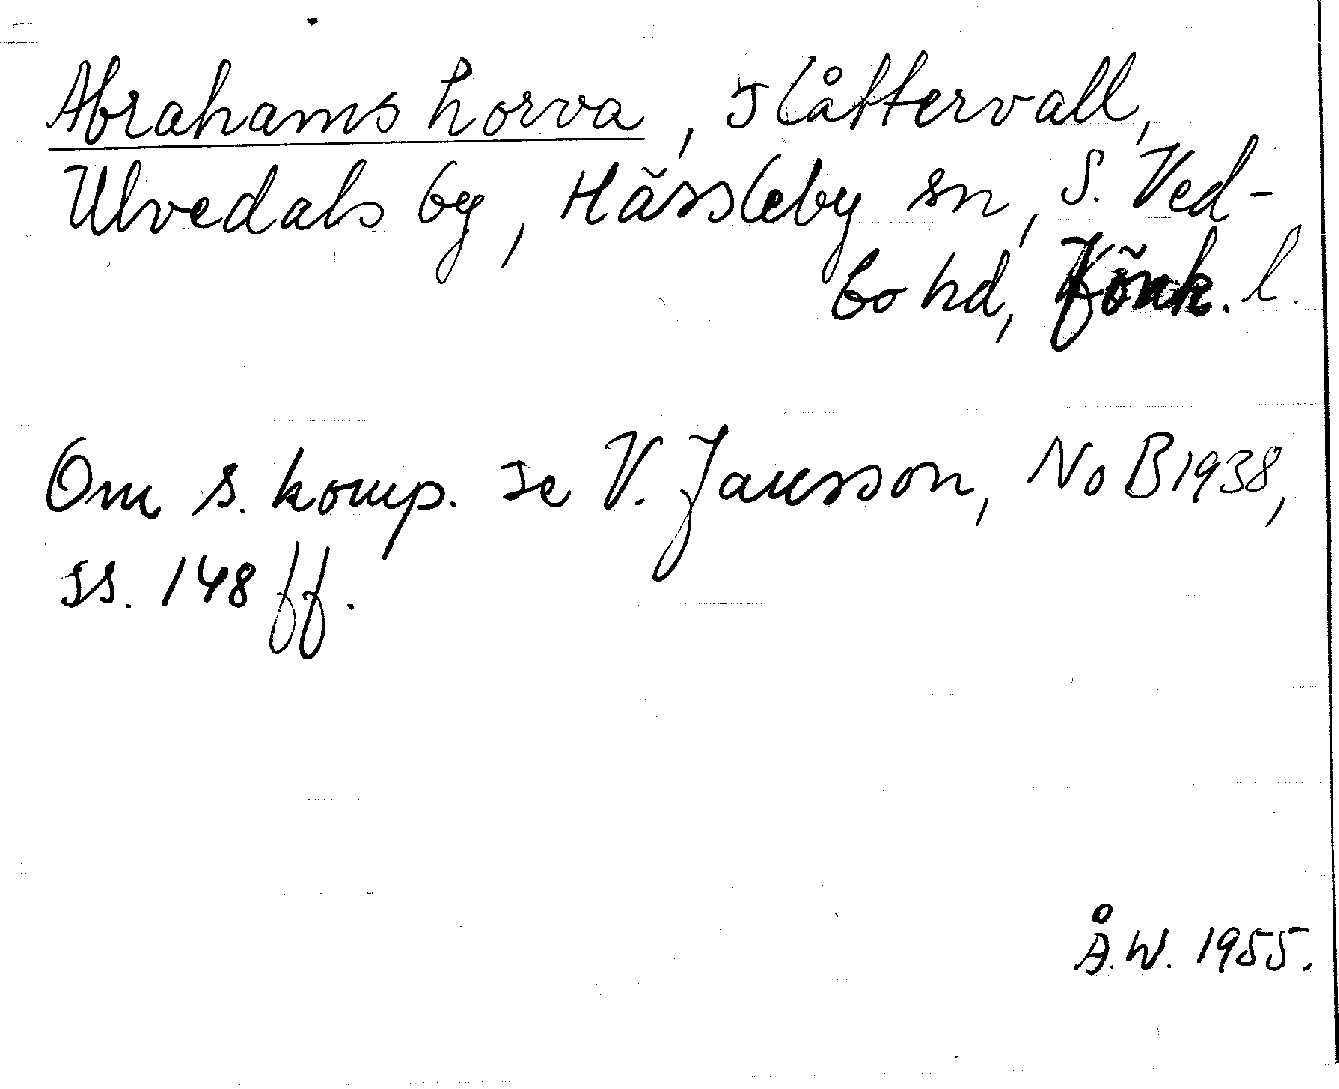 Abrahamshorva, slåttervall,
Ulvedals by, Hässleby sn, S. Ved-
bo hd, Jönk. l.
Om s. komp. se V. Jansson, NoB 1938,
ss. 148 ff.
Å.W. 1955.